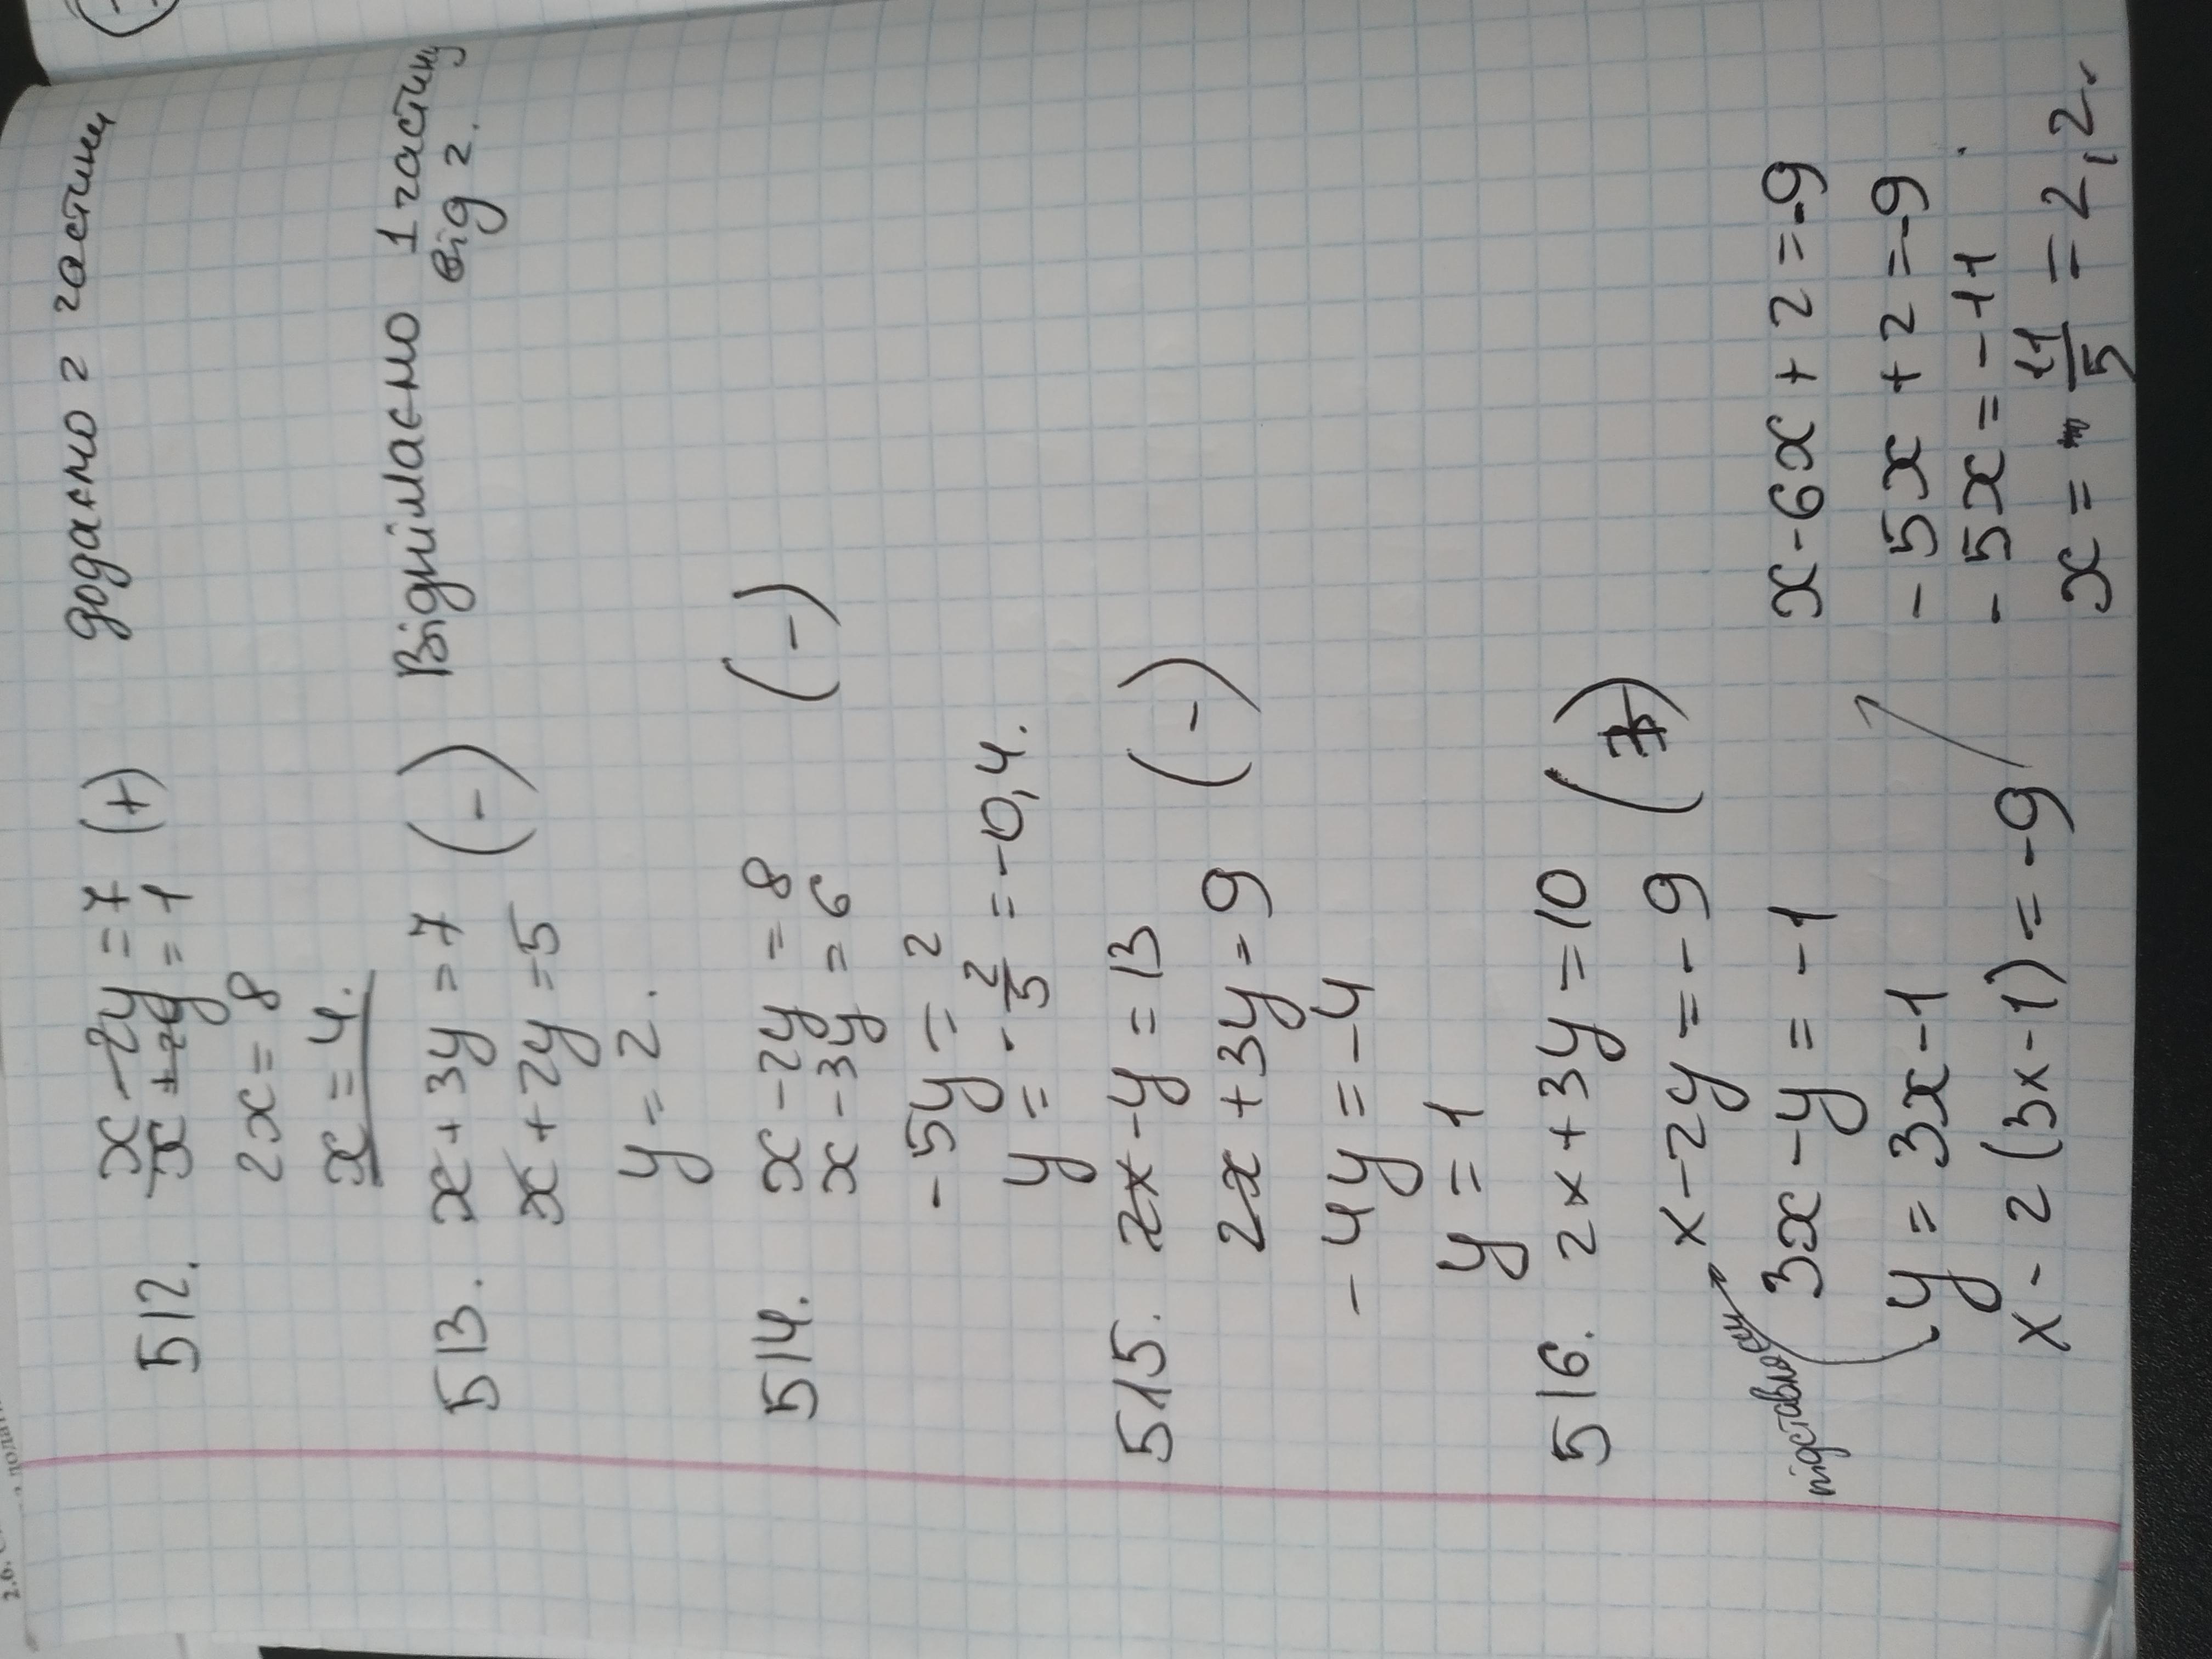 512. x - 2y = 7 (+) додаємо 2 частини
x + 2y = 1
2x = 8
x = 4.
513. x + 3y = 7 (-) Віднімаємо 1 частину
від 2.
x + 2y = 5
y = 2.
514. x - 2y = 8 (-)
x - 3y = 6
-5y = 2
y = -2/5 = -0,4.
515. 2x - y = 13 (-)
2x + 3y = 9
-4y = -4
y = 1
516. 2x + 3y = 10
x - 2y = -9
підставляєм 3x - y = -1
y = 3x - 1
x - 2(3x - 1) = -9
x - 6x + 2 = -9
-5x + 2 = -9
-5x = -11
x = 11/5 = 2,2.